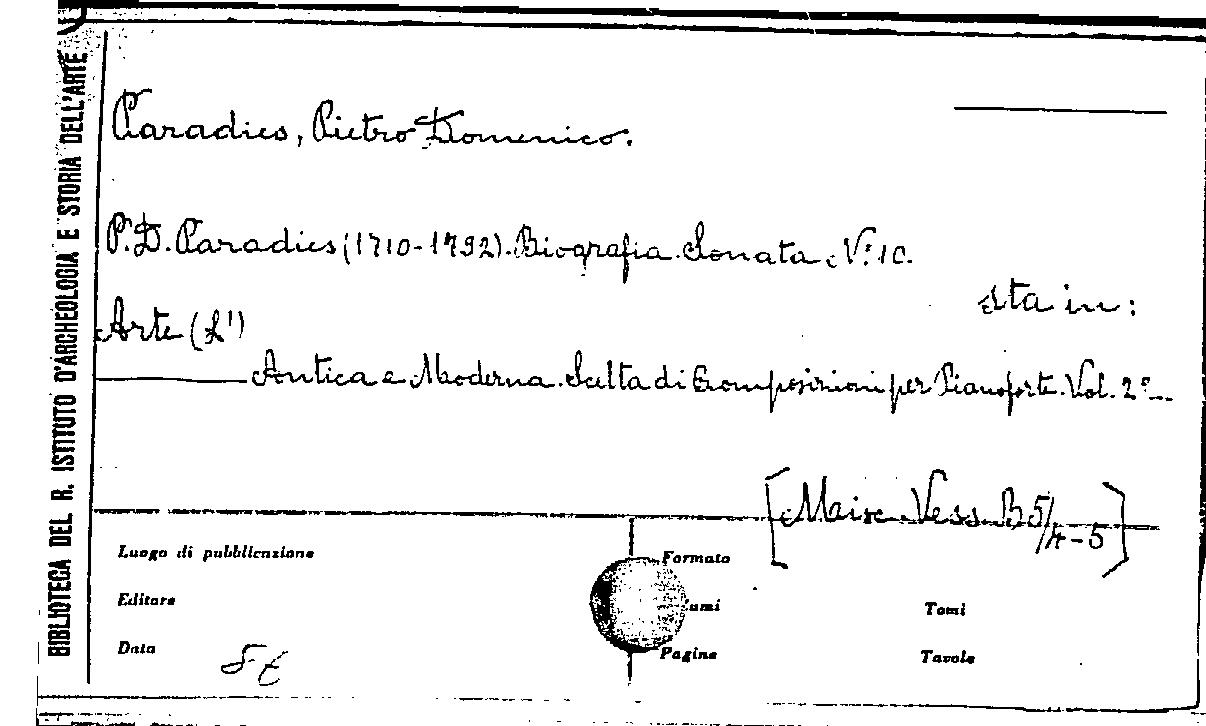 BIBLIOTECA DEL R. ISTITUTO D'ARCHEOLOGIA E STORIA DELL'ARTE
Paradies, Pietro Domenico.
P. D. Paradies (1710-1792). Biografia. Sonata N.° 10.
sta in:
Arte (L')
Antica e Moderna. Scelta di Composizioni per Pianoforte. Vol. 2°
[Maise Vess. B 5/4-5]
Luogo di pubblicazione
Formato
Editore
umi
Tomi
Data
Pagine
Tavole